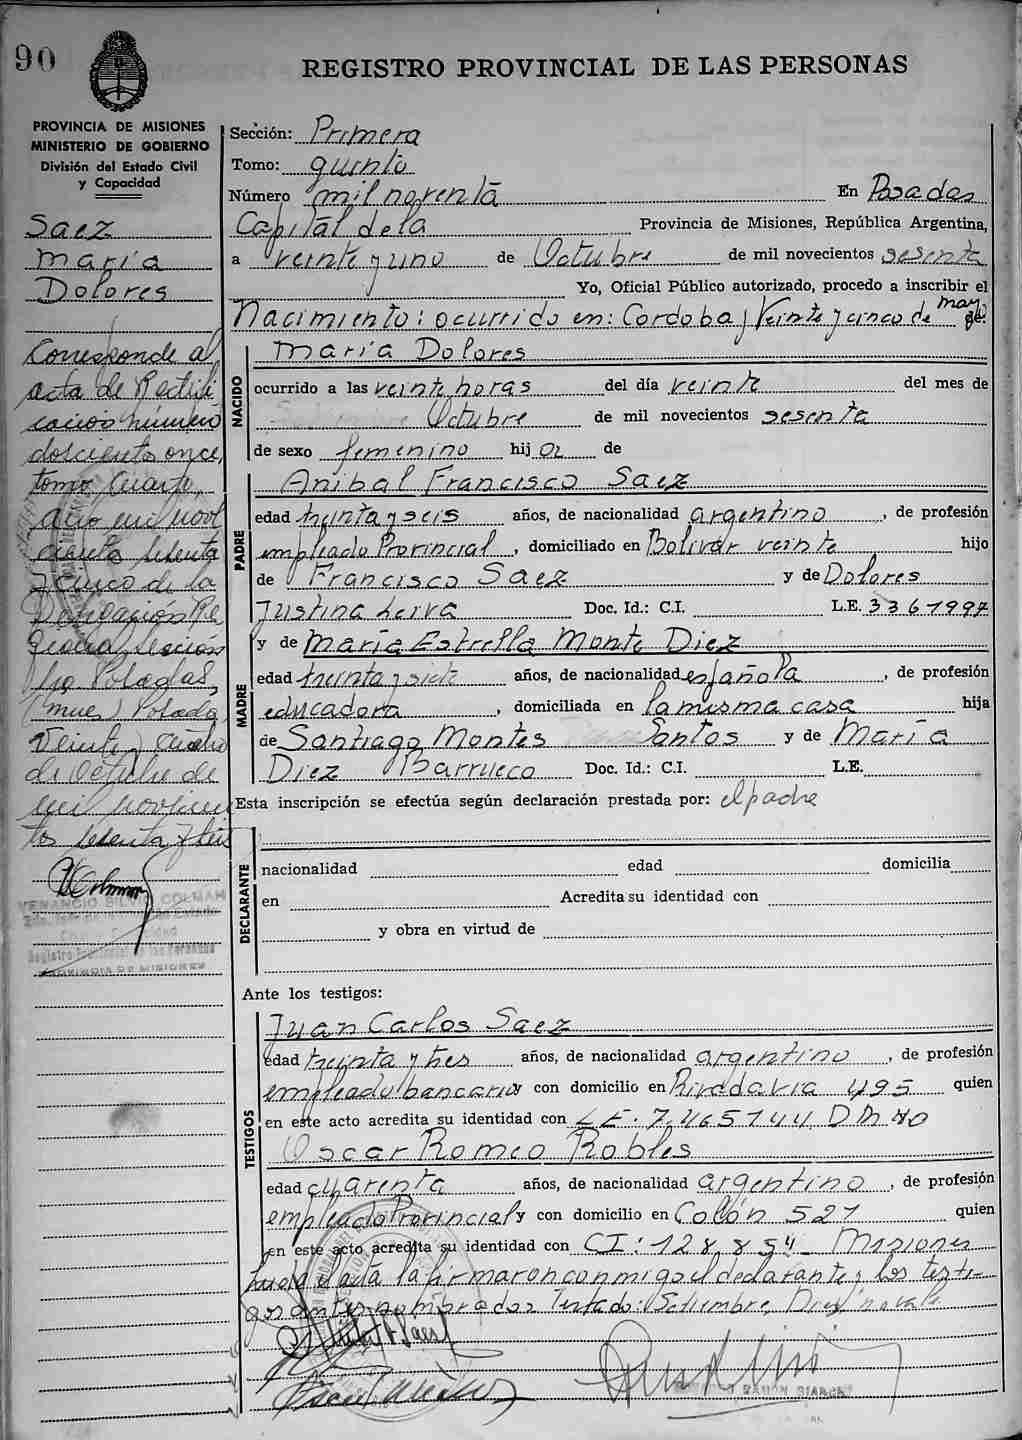 90
REGISTRO PROVINCIAL DE LAS PERSONAS
PROVINCIA DE MISIONES
MINISTERIO DE GOBIERNO
División del Estado Civil
y Capacidad
Saez
María
Dolores
Corresponde al
acta de Rectifi
cación número
doscientos once,
tomo Cuarto,
año mil novе
cientos sesenta
y cinco de la
Delegación Re
gional, sección
Posadas,
Posadas
Veinte y cuatro
de Octubre de
mil novecien
tos sesenta y seis
VENANCIO SILVIO COLMAN
Registro Provincial de las Personas
PROVINCIA DE MISIONES
Sección: Primera
Tomo: quinto
Número mil noventa En Posadas
Capital de la Provincia de Misiones, República Argentina,
a veinte y uno de Octubre de mil novecientos sesenta
Yo, Oficial Público autorizado, procedo a inscribir el
Nacimiento: ocurrido en: Cordoba y Veinte y cinco de mayo de:
NACIDO
María Dolores
ocurrido a las veinte horas del día veinte del mes de
Octubre de mil novecientos sesenta
de sexo femenino hij a de
PADRE
Anibal Francisco Saez
edad treinta y seis años, de nacionalidad argentino, de profesión
empleado Provincial, domiciliado en Bolivar veinte hijo
de Francisco Saez y de Dolores
Justina Leiva Doc. Id.: C.I. L.E. 3361997
MADRE
y de María Estrella Monte Diez
edad treinta y siete años, de nacionalidad española, de profesión
educadora, domiciliada en la misma casa hija
de Santiago Montes Santos y de María
Diez Barrueco Doc. Id.: C.I. L.E.
Esta inscripción se efectúa según declaración prestada por: el padre
DECLARANTE
nacionalidad edad domicilia
en Acredita su identidad con
y obra en virtud de
Ante los testigos:
TESTIGOS
Juan Carlos Saez
edad treinta y tres años, de nacionalidad argentino, de profesión
empleado bancario y con domicilio en Rivadavia 495 quien
en este acto acredita su identidad con L.E. 7.465144 D M 40
Oscar Romeo Robles
edad cuarenta años, de nacionalidad argentino, de profesión
empleado Provincial y con domicilio en Colón 521 quien
en este acto acredita su identidad con CI: 128.854 Misiones
Leída el acta la firmaron conmigo el declarante y los testi-
gos antes nombrados Testado: Setiembre, no vale